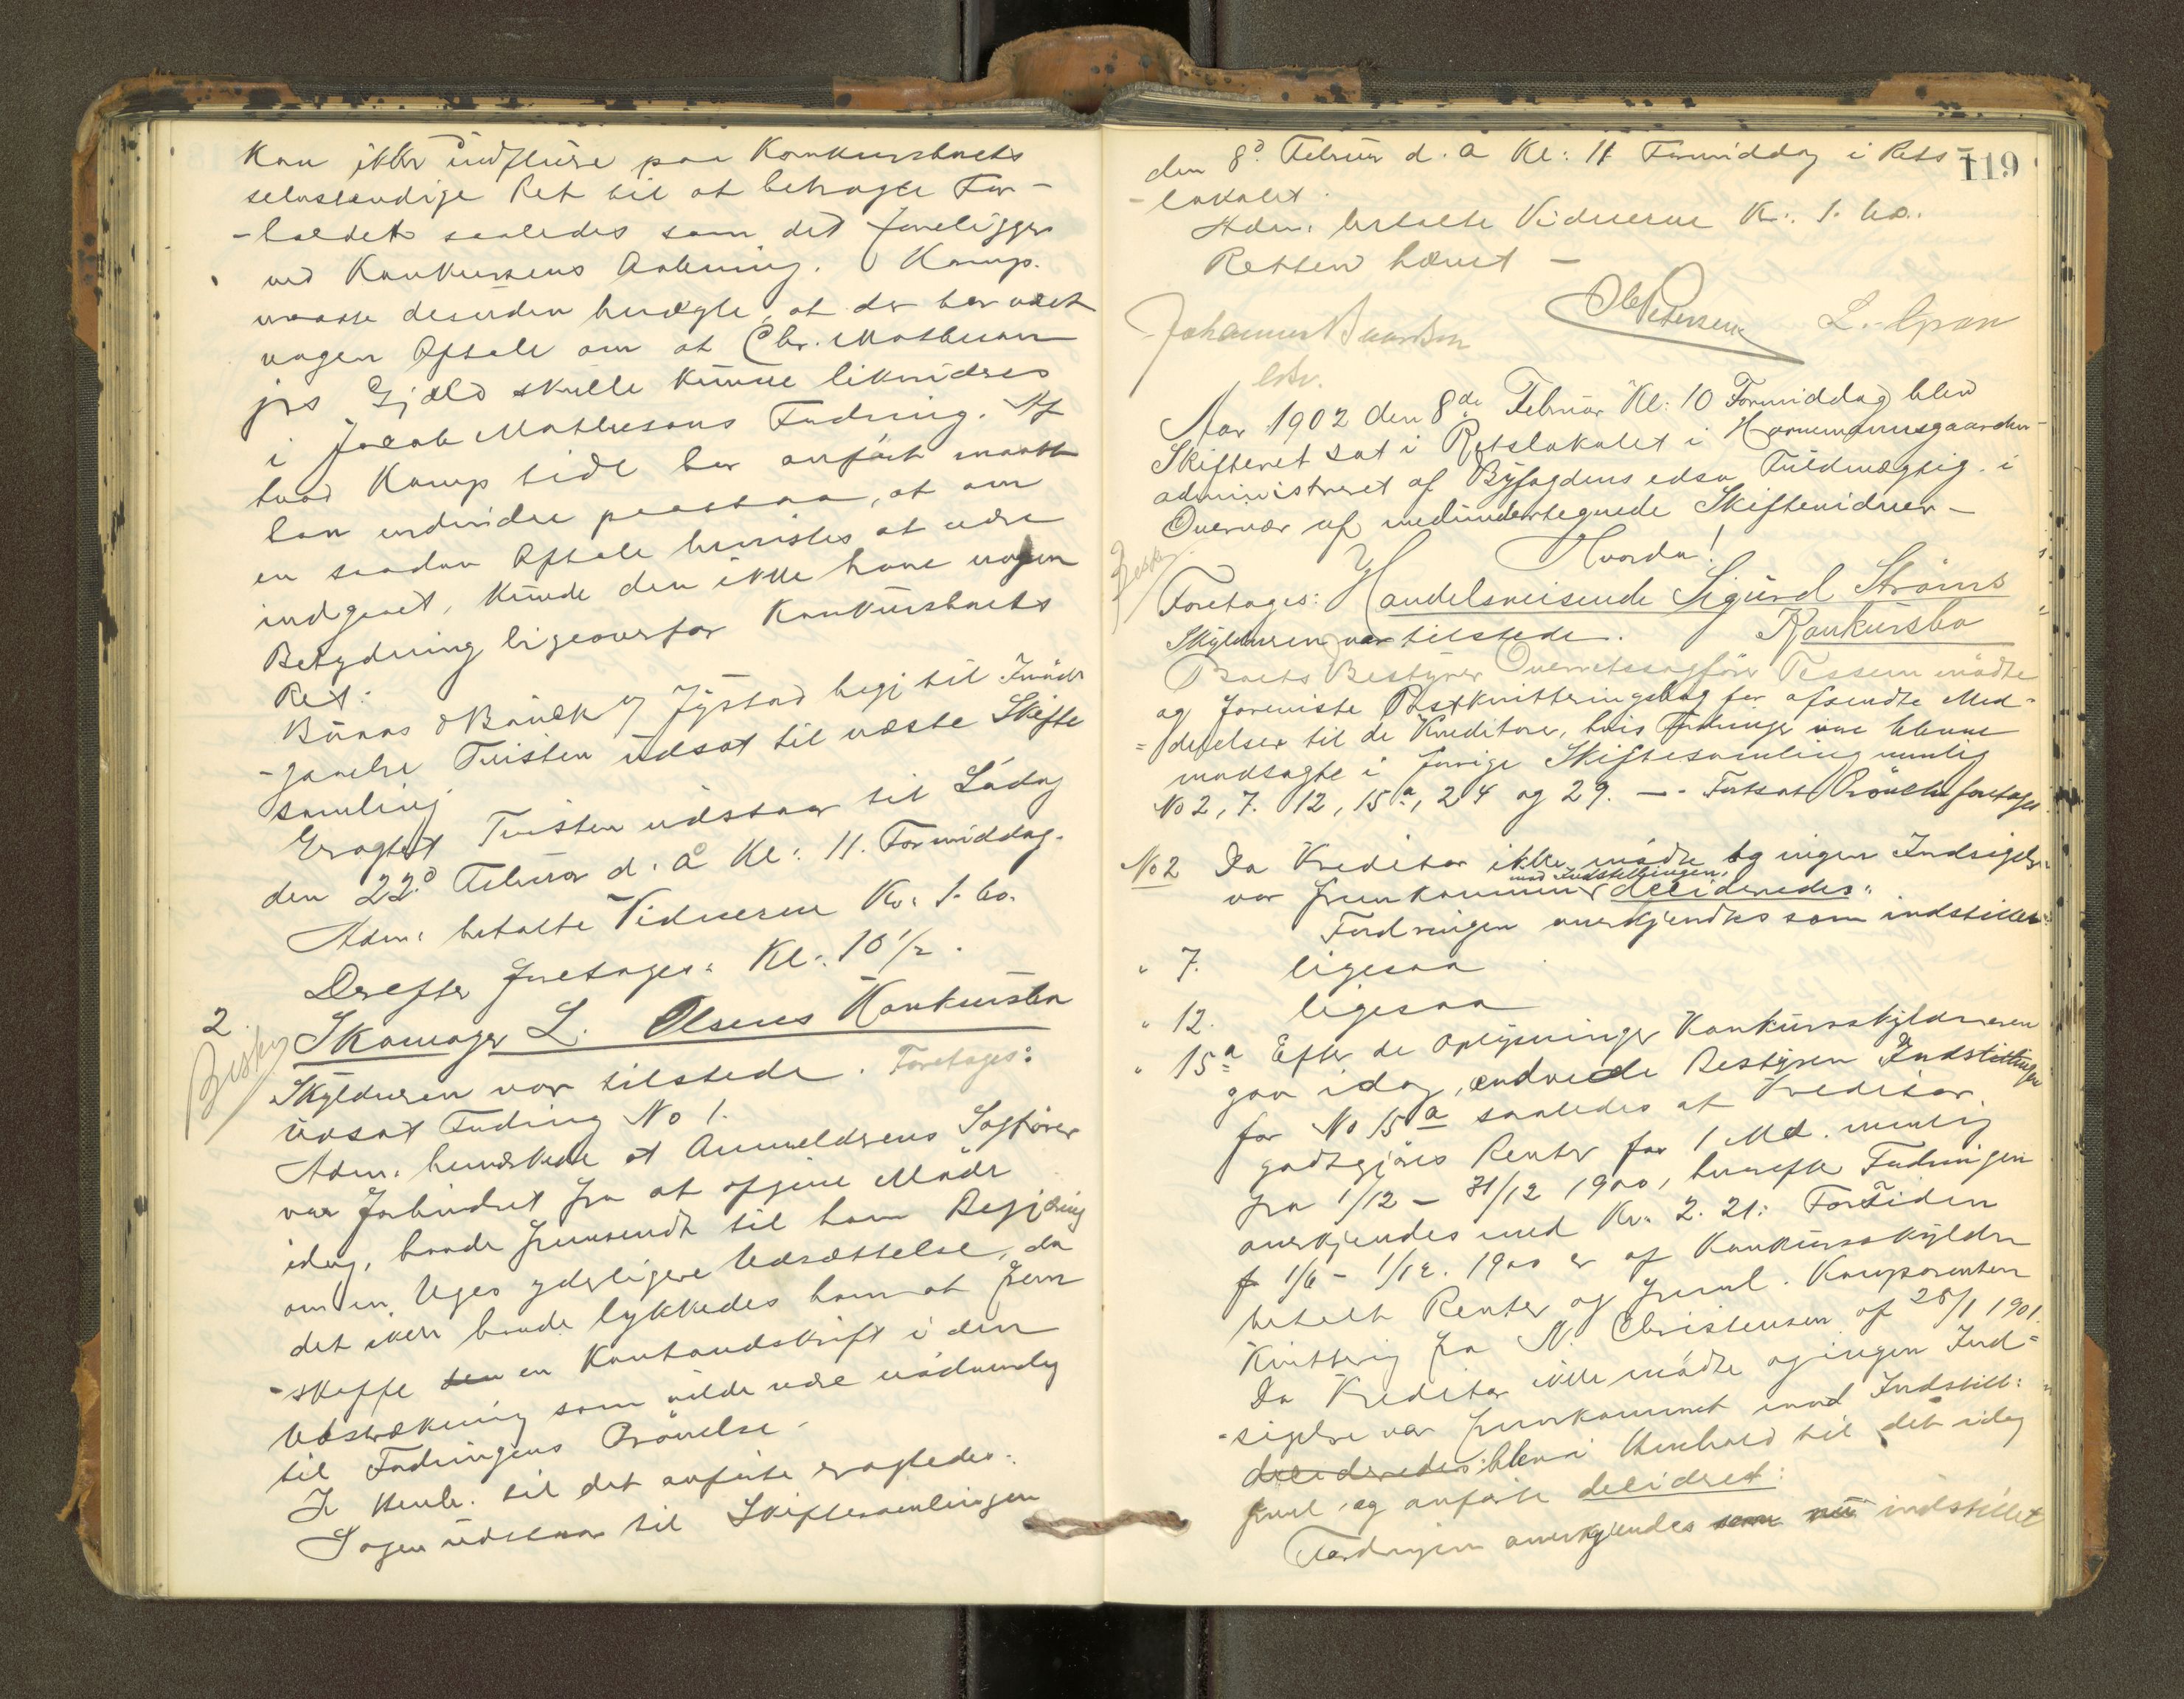 kan ikke indflüere paa Konkursboets
selvstændige Ret til at betragte For-
-holdet saaledes som det foreligger
ved Konkursens Aabning. Komp.
maatte desuden benægte, at der har været
nogen Aftale om at Chr. Mathesons
Gjæld skulle kunne likvideres
i Jacob Mathesons Fordring. Af
hvad Komp sidst har anført maatte
han endvidere paastaa, at om
en saadan Aftale bevistes at være
indgaaet, kunde den ikke have nogen
Betydning ligeoverfor Konkursboets
Ret:
Tvisten udsat til næste Skifte
samling
Eragtet Tvisten udstaar til Lördag
den 22d Februar d. å Kl: 11. Formiddag.
Adm: betalte Vidnerne Kr. 1.60.
Derefter foretages: Kl: 10 1/2.
2. Skomager L. Olsens Konkursbo
Besky
Skyldneren var tilstede. Foretages:
udsat Fordring No 1.
Adm. bemærkede at Anmelderens Sagförer
var forhindret fra at afgive Möde
idag, havde fremsendt til ham Begjæring
om en Uges yderligere Udsættelse, da
det ikke havde lykkedes ham at frem
-skaffe den en Kontoudskrift i den
Udstrækning som vilde være nödvendig
til Fordringens Prövelse -
I Henh. til det anförte eragtedes:
Sagen udstaar til Skiftesamlingen
119
den 8d Februar d. a Kl: 11 Formiddag i Rets-
-lokalet.
Adm: betalte Vidnerne Kr. 1.60.
Retten hævet -
Ole Petersen L. Gran
Aar 1902 den 8de Februar Kl: 10 Formiddag blev
Skifteret sat i Retslokalet i Hornemannsgaarden
administreret af Byfogdens edsv. Fuldmægtig i
Overvær af medundertegnede Skiftevidner -
Hvorda!
Besky
Foretages: Handelsreisende Sigurd Ströms
Skyldneren var tilstede. Konkursbo
Boets Bestyrer Overretssagförer Tessem mödte
og foreviste Postkvitteringsbog for afsendte Med-
=delelser til de Kreditorer, hvis Fordringer var blevne
modsagte i forrige Skiftesamling nemlig
No 2, 7. 12, 15a, 24 og 29. - Fortsat Prövelse foretages
No 2 Da Kreditor ikke mödte og ingen Indsigelse
mod Indstillingen,
var fremkommen decideredes:
Fordringen anerkjendes som indstillet:
" 7. ligesaa
" 12. ligesaa
" 15a Efter de Oplysninger Konkursskyldneren
gav idag, ændrede Bestyren Indstillingen
for No 15a saaledes at Kreditor
godtgjöres Renter for 1 Md. nemlig
fra 1/12 - 31/12 1900, hvorefter Fordringen
anerkjendes med Kr. 2.21: For Tiden
f 1/6 - 1/12. 1900 er af Konkursskyldn
betalt Renter og freml. Komparenten
Kvittering fra N. Christensen af 25/1 1901.
Da Kreditor ikke mödte og ingen Ind-
-sigelse var fremkommet mod Indstill:
decideredes: blev i Henhold til det idag
freml. og anförte decideret:
Fordringen anerkjendes som nu indstillet